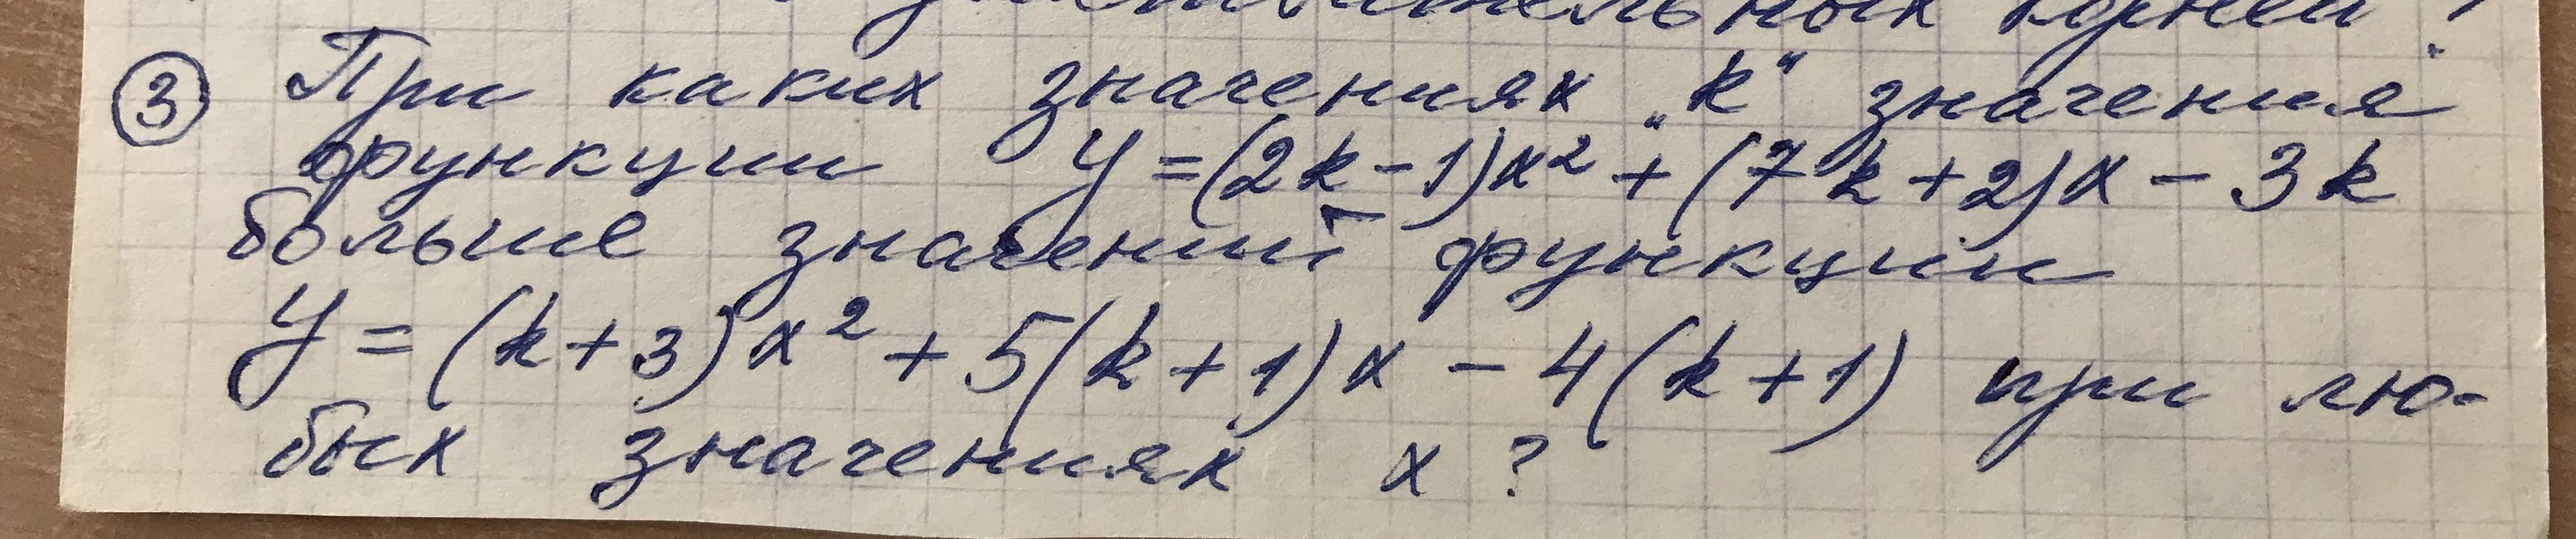 действительных корней?
③ При каких значениях „k“ значения
функции y = (2k - 1)x² + (7k + 2)x - 3k
больше значений функции
y = (k + 3)x² + 5(k + 1)x - 4(k + 1) при лю-
бых значениях x?